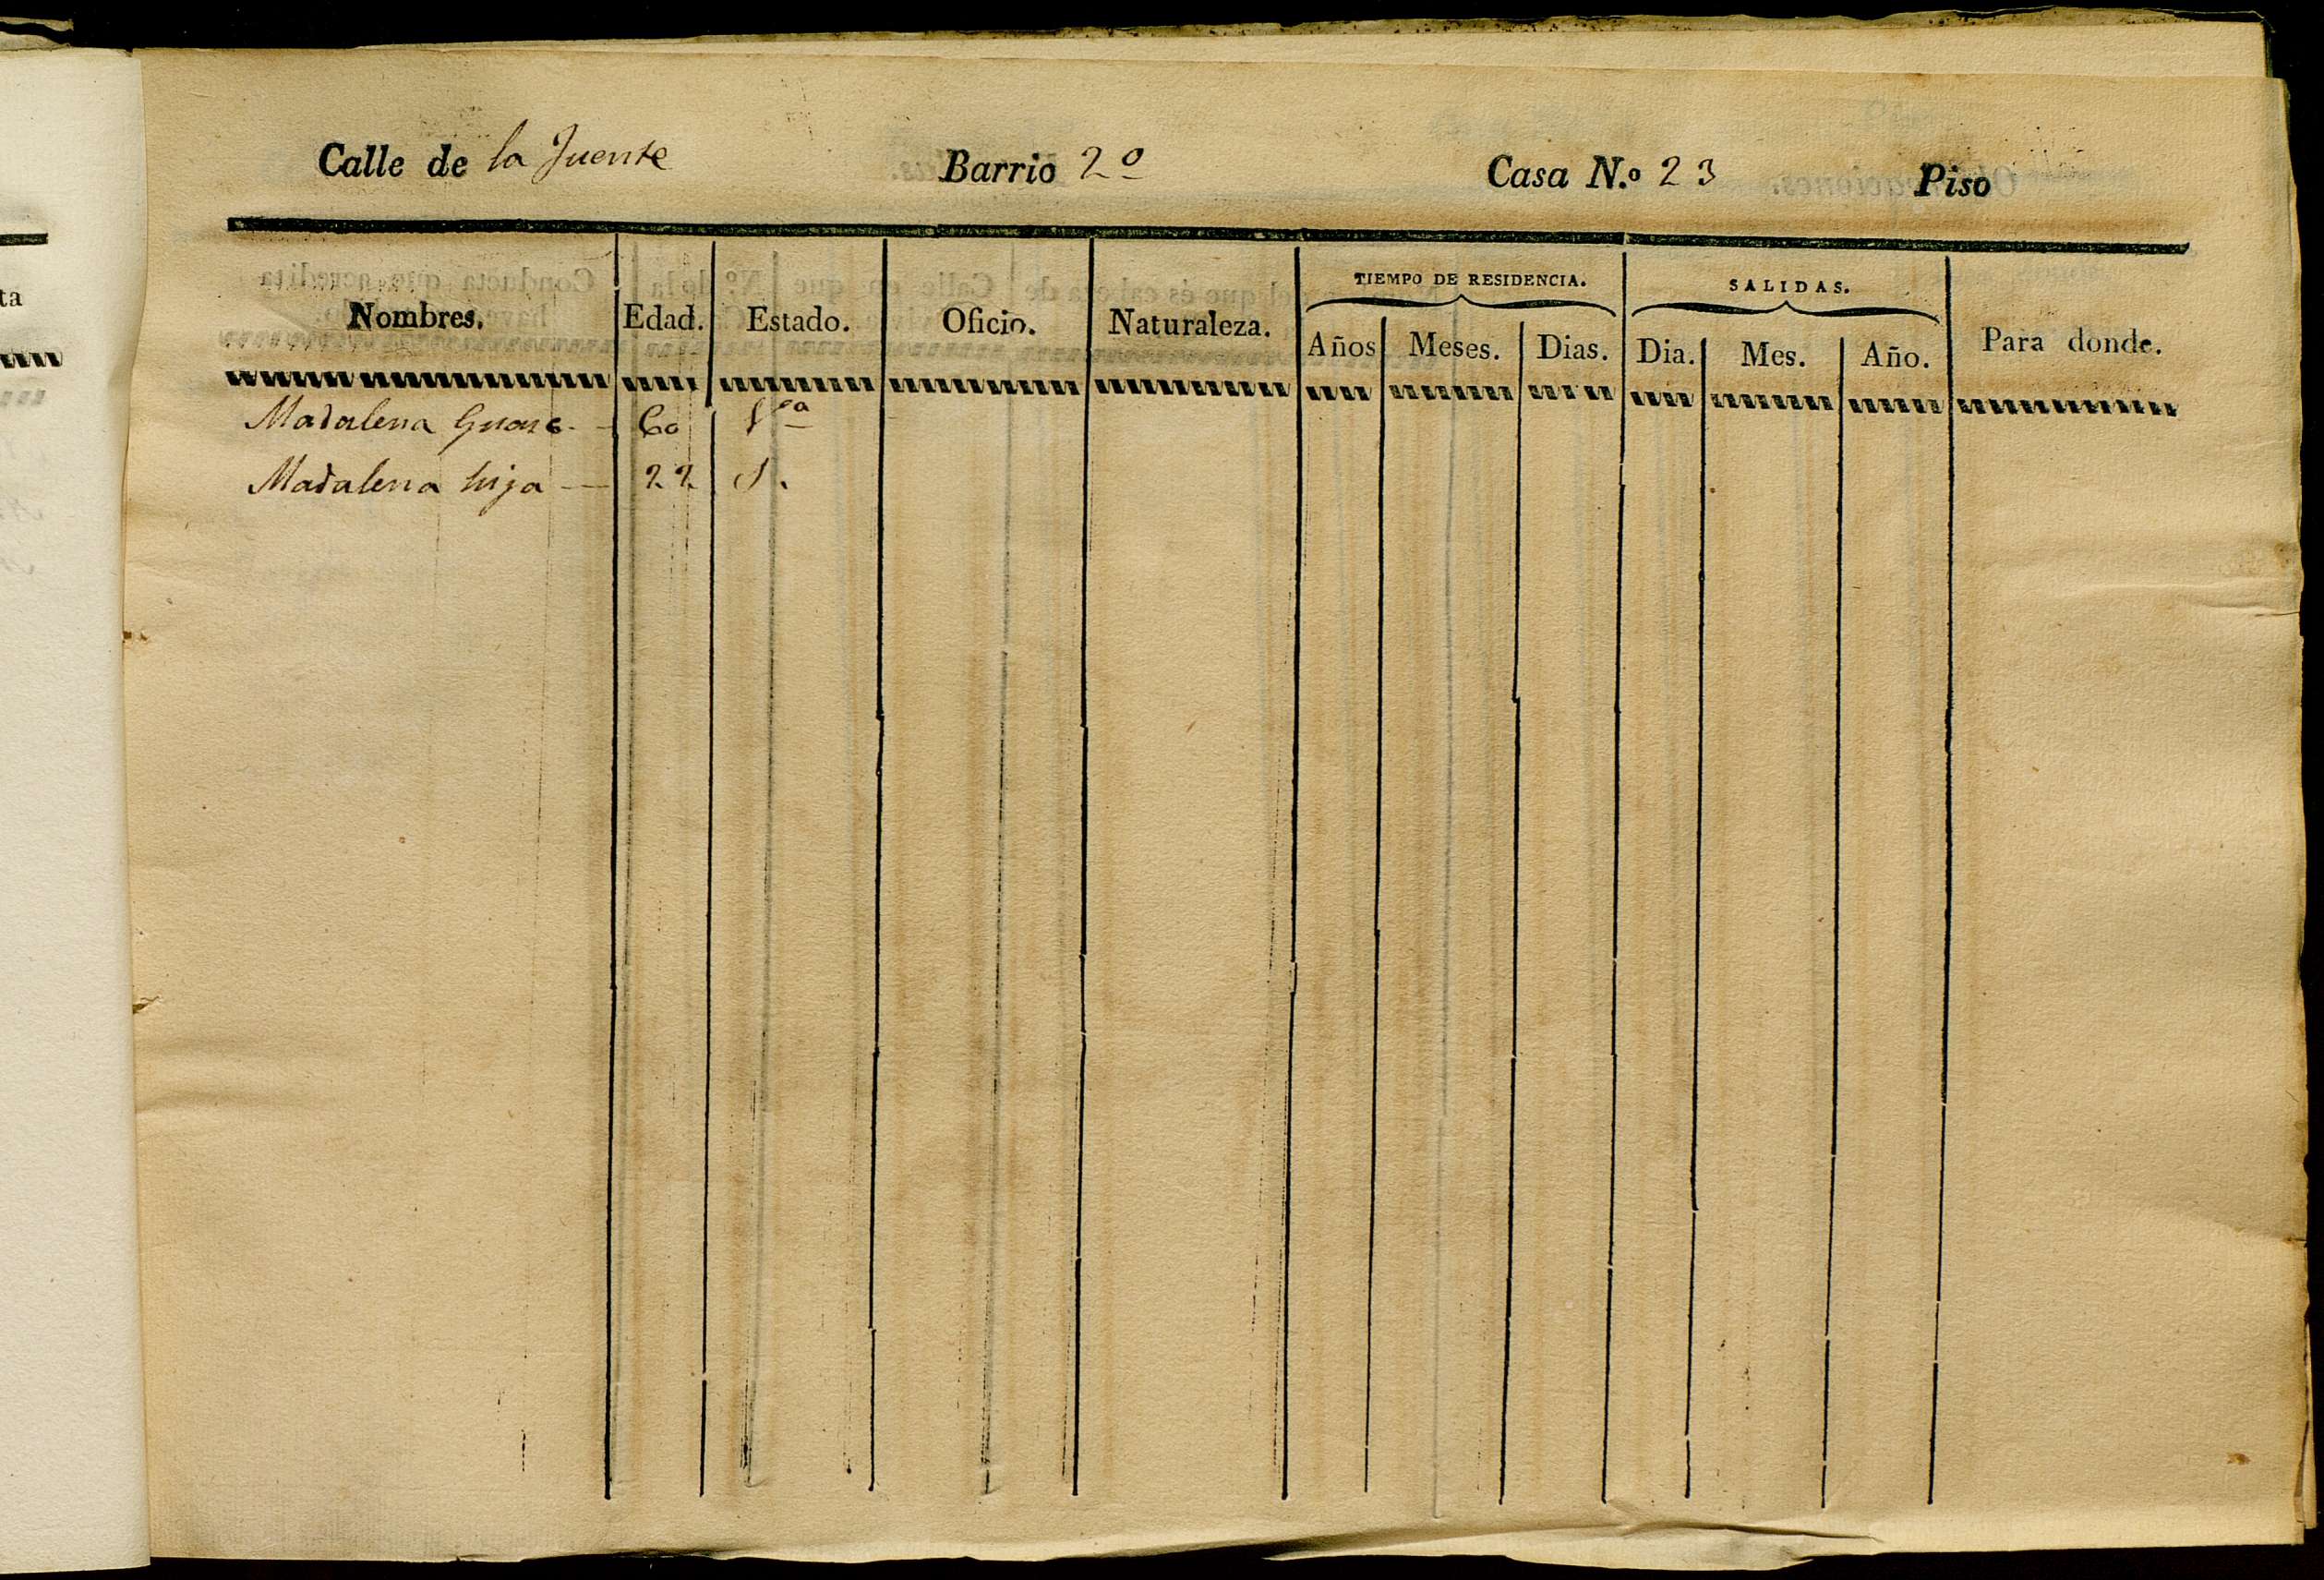 Calle de la Fuente Barrio 2º Casa N.º 23 Piso
TIEMPO DE RESIDENCIA. SALIDAS.
Nombres. Edad. Estado. Oficio. Naturaleza. Años Meses. Dias. Dia. Mes. Año. Para donde.
Madalena 60 Vᵈᵃ
Madalena hija — 22 S.
ta